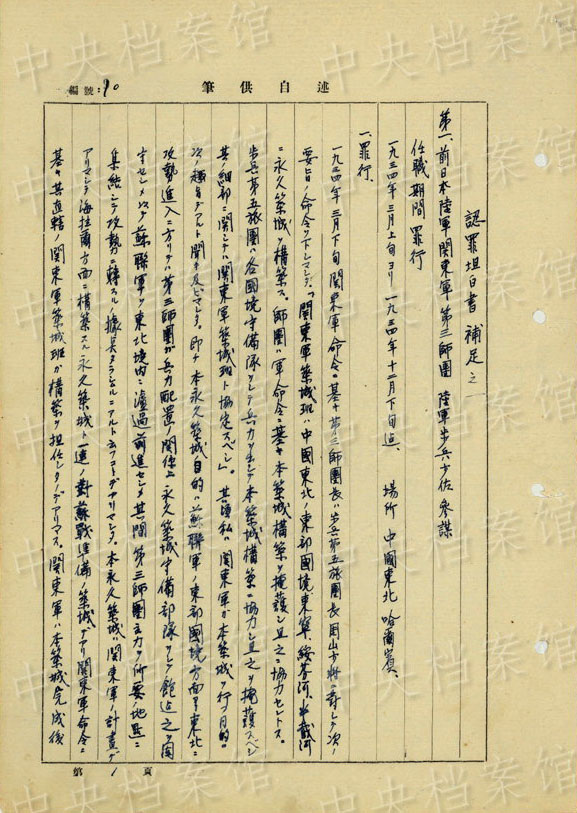 中央档案馆
編號：90
述自供筆
認罪坦白書 補足之一
第一、前日本陸軍関東軍第三師團 陸軍歩兵少佐参謀
任職期間罪行
一九三四年三月上旬ヨリ 一九三四年十二月下旬迄、 場所 中國東北哈爾賓、
一、罪行、
一九三四年三月下旬関東軍命令ニ基キ第三師團長ハ歩兵第五旅團長 少将ニ対シテ次ノ
要旨ノ命令ヲ下シマシタ。「関東軍築城班ハ中國東北ノ東部國境東寧、綏芬河、半截河
ニ永久築城ヲ構築ス。師團ハ軍命令ニ基キ本築城構築ヲ掩護シ且之ニ協力セントス。
歩兵第五旅團ハ各國境守備隊 兵力 本築城構築ニ協力シ且之ヲ掩護スベシ
其ノ細部ニ関シテハ関東軍築城班ト協定スベシ」。其頃私ハ関東軍ガ本築城ヲ行フ目的ハ
次ノ様 デアルト聞キ及ビマシタ。即チ本永久築城ノ目的ハ蘇聯軍ノ東部國境方面ヨリ東北ニ
攻勢進入ニ方リテハ第三師團ガ兵力配置ノ関係上永久築城守備部隊ヲシテ飽迄之ヲ固
守セシメ 蘇聯軍ヲ東北境内ニ 過前進セシメ其間第三師團主力ヲ所要ノ地点ニ
集結シテ攻勢ニ轉スル 據点タラシムルニアルト云フコトデアリマシタ。本永久築城ハ関東軍ノ計画デ
アリマシテ海拉爾方面ニ構築スル永久築城ト一連ノ対蘇戦準備ノ築城デアリ関東軍命令ニ
基キ其直轄ノ関東軍築城班ガ構築ヲ担任シタノデアリマス。関東軍ハ本築城完成後
第1頁